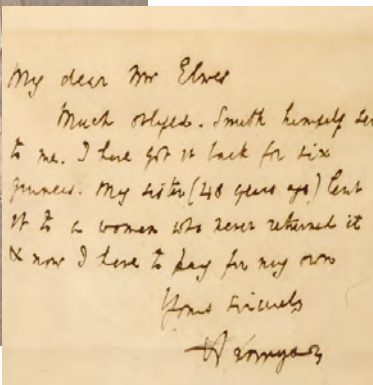 My dear Mr Elwes
Much obliged. Smith himself
to me. I have got it back for six
guineas. My sister (48 years ago) lent
it to a woman who never returned it
& now I have to pay for my own
Yours sincerely
ATennyson